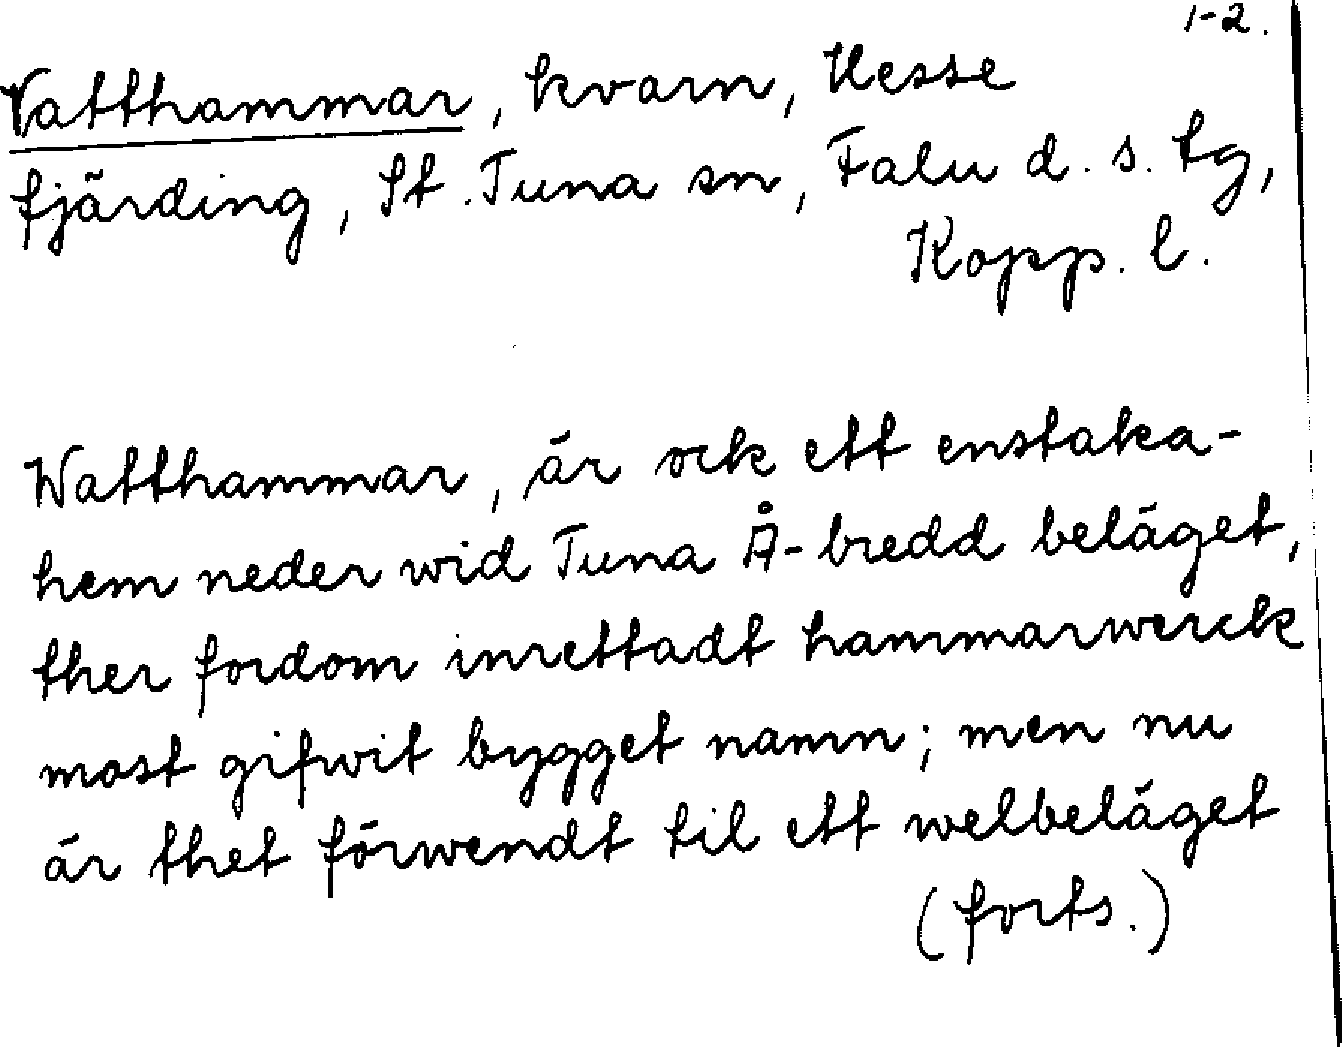 1-2.
Vatthammar, kvarn, Hesse
fjärding, St. Tuna sn, Falu d. s. tg,
Kopp. l.
Watthammar, är ock ett enstaka-
hem neder wid Tuna Å-bredd beläget,
ther fordom inrettadt hammarwerck
most gifwit bygget namn; men nu
är thet förwendt til ett welbeläget
(forts.)